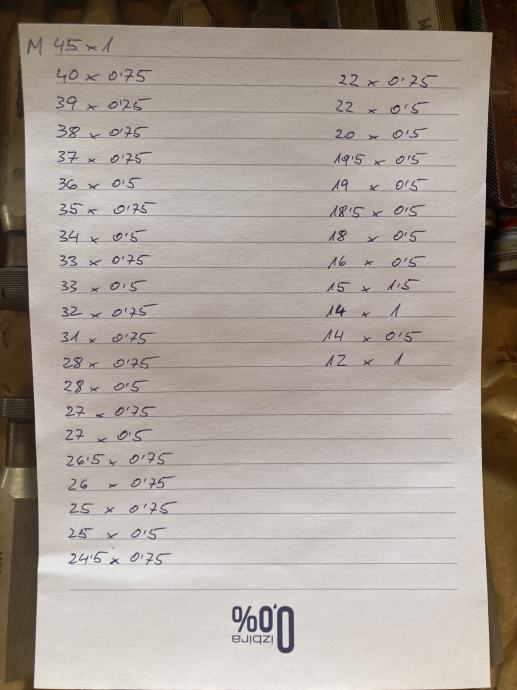 M 45 x 1
40 x 0'75
39 x 0'75
38 x 0'75
37 x 0'75
36 x 0'5
35 x 0'75
34 x 0'5
33 x 0'75
33 x 0'5
32 x 0'75
31 x 0'75
28 x 0'75
28 x 0'5
27 x 0'75
27 x 0'5
26'5 x 0'75
26 x 0'75
25 x 0'75
25 x 0'5
24'5 x 0'75
22 x 0'75
22 x 0'5
20 x 0'5
19'5 x 0'5
19 x 0'5
18'5 x 0'5
18 x 0'5
16 x 0'5
15 x 1'5
14 x 1
14 x 0'5
12 x 1
0,0%
izbira